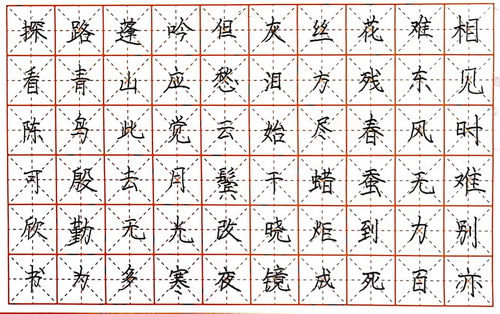 相见时难别亦
难东风无力百
花残春蚕到死
丝方尽蜡炬成
灰泪始干晓镜
但愁云鬓改夜
吟应觉月光寒
蓬山此去无多
路青鸟殷勤为
探看陈可欣书